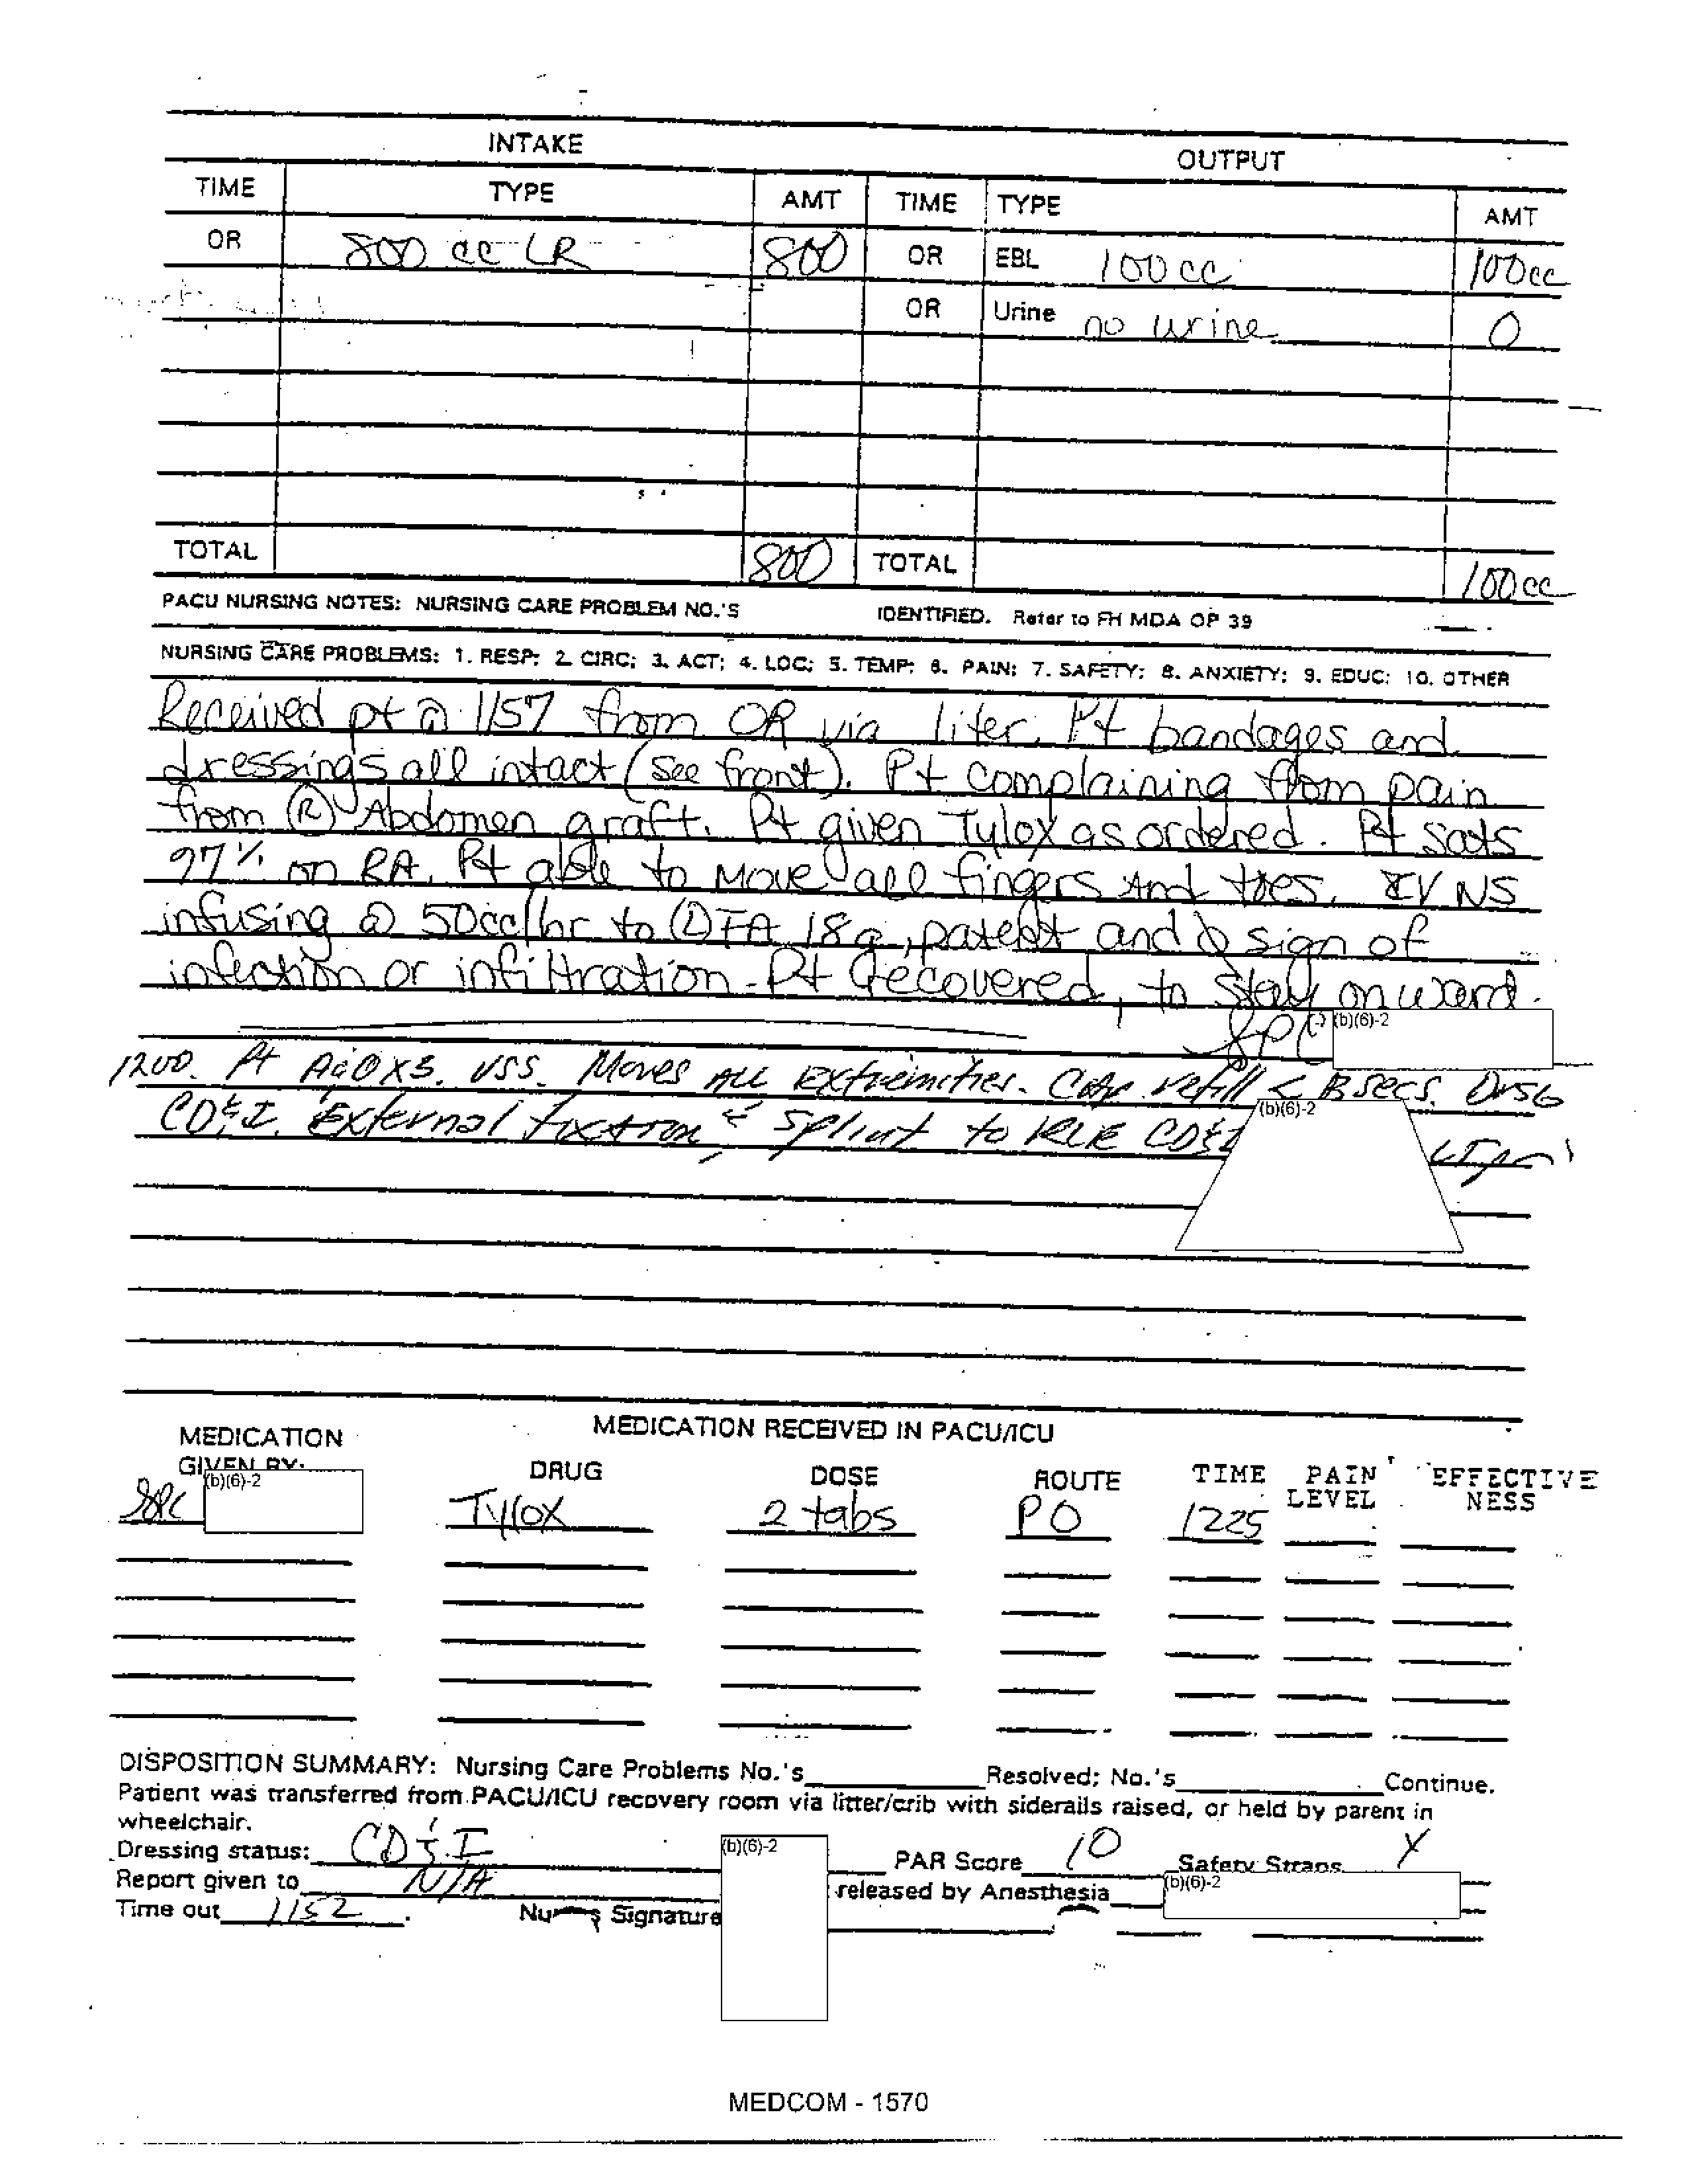 INTAKE OUTPUT
TIME TYPE AMT TIME TYPE AMT
OR 800 cc LR 800 OR EBL 100cc 100cc
OR Urine no urine 0
TOTAL 800 TOTAL 100cc
PACU NURSING NOTES: NURSING CARE PROBLEM NO.'S IDENTIFIED. Refer to FH MDA OP 39
NURSING CARE PROBLEMS: 1. RESP; 2. CIRC; 3. ACT; 4. LOC; 5. TEMP; 6. PAIN; 7. SAFETY; 8. ANXIETY; 9. EDUC; 10. OTHER
Received pt @ 1157 from OR via liter. Pt bandages and
dressings all intact (see front). Pt complaining from pain
from (R) Abdomen graft. Pt given Tylox as ordered. Pt sats
97% on RA. Pt able to move all fingers And toes. IV NS
infusing @ 50cc/hr to (L) FA 18g, patent and Ø sign of
infection or infiltration. Pt recovered, to stay on ward.
SPC (b)(6)-2
1200. Pt A&OX3. VSS. Moves ALL Extremities. Cap. refill < 3 secs. Drsg
CD&I. External fixation & splint to RLE CD&I (b)(6)-2
MEDICATION RECEIVED IN PACU/ICU
MEDICATION GIVEN BY: DRUG DOSE ROUTE TIME PAIN LEVEL EFFECTIVE NESS
SPC (b)(6)-2 Tylox 2 tabs PO 1225
DISPOSITION SUMMARY: Nursing Care Problems No.'s Resolved; No.'s Continue.
Patient was transferred from PACU/ICU recovery room via litter/crib with siderails raised, or held by parent in
wheelchair.
Dressing status: CD&I (b)(6)-2 PAR Score 10 Safety Straps X
Report given to N/A released by Anesthesia (b)(6)-2
Time out 1152 Nurses Signature
MEDCOM - 1570